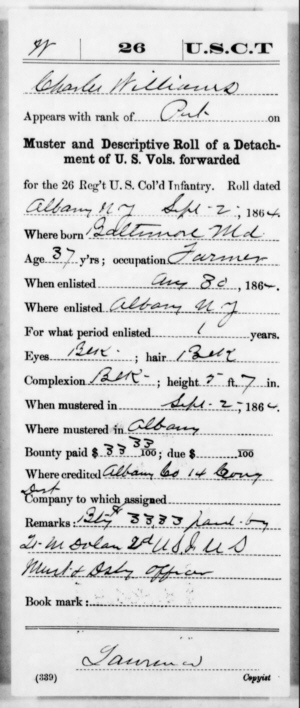 W 26 U.S.C.T
Charles Williams
Appears with rank of Pvt on
Muster and Descriptive Roll of a Detach-
ment of U. S. Vols. forwarded
for the 26 Reg't U. S. Col'd Infantry. Roll dated
Albany N Y Sept 2, 1864.
Where born Baltimore Md
Age 37 y'rs; occupation Farmer
When enlisted Aug 30, 1864.
Where enlisted Albany N Y
For what period enlisted 1 years.
Eyes Blk; hair Blk
Complexion Blk; height 5 ft. 7 in.
When mustered in Sept 2, 1864.
Where mustered in Albany
Bounty paid $ 33 33/100; due $ 100
Where credited Albany Co 14 Cong
Dist
Company to which assigned
Remarks: Bty 3333 paid by
M Dolan 2d U S I U S
Must & Disbg Officer
Book mark:
Lawrence
(339) Copyist